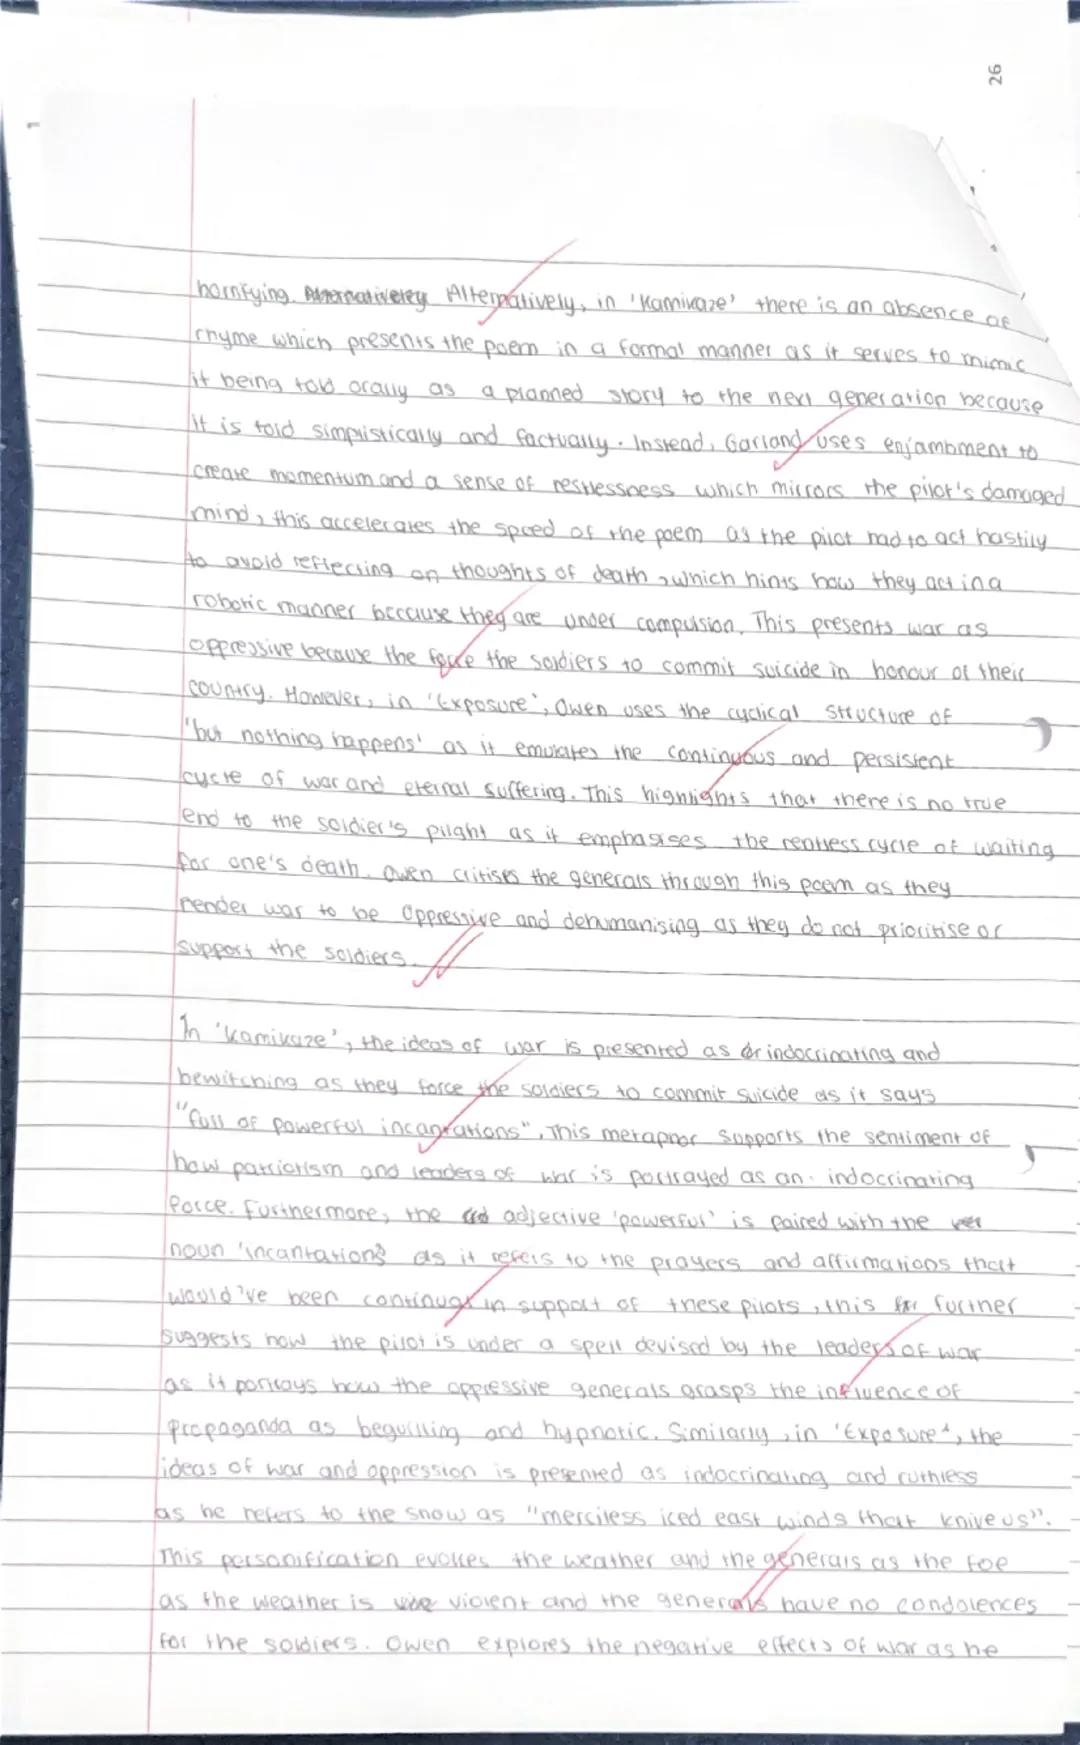 26
horrifying. Alternatively, in 'Kamikaze' there is an absence of
rhyme which presents the poem in a formal manner as it serves to mimic
it being told orally as a planned story to the next generation because
it is told simplistically and factually. Instead, Garland uses enjambment to
create momentum and a sense of restlessness which mirrors the pilot's damaged
mind, this accelerates the speed of the poem as the pilot had to act hastily
to avoid reflecting on thoughts of death, which hints how they act in a
robotic manner because they are under compulsion. This presents war as
oppressive because the force the soldiers to commit suicide in honour of their
country. However, in 'Exposure', Owen uses the cyclical structure of
'but nothing happens' as it emulates the continuous and persistent
cycle of war and eternal suffering. This highlights that there is no true
end to the soldier's plight as it emphasises the restless cycle of waiting
for one's death. Owen critises the generals through this poem as they
render war to be oppressive and dehumanising as they do not prioritise or
support the soldiers.
In 'Kamikaze', the ideas of war is presented as indocrinating and
bewitching as they force the soldiers to commit suicide as it says
"full of powerful incantations". This metaphor supports the sentiment of
how patriotism and leaders of war is portrayed as an indocrinating
force. Furthermore, the adjective 'powerful' is paired with the
noun 'incantations' as it refers to the prayers and affirmations that
would've been continual in support of these pilots, this further
suggests how the pilot is under a spell devised by the leaders of war
as it portrays how the oppressive generals grasps the influence of
propaganda as beguiling and hypnotic. Similarly, in 'Exposure', the
ideas of war and oppression is presented as indocrinating and ruthless
as he refers to the snow as "merciless iced east winds that knive us".
This personification evokes the weather and the generals as the foe
as the weather is violent and the generals have no condolences
for the soldiers. Owen explores the negative effects of war as he